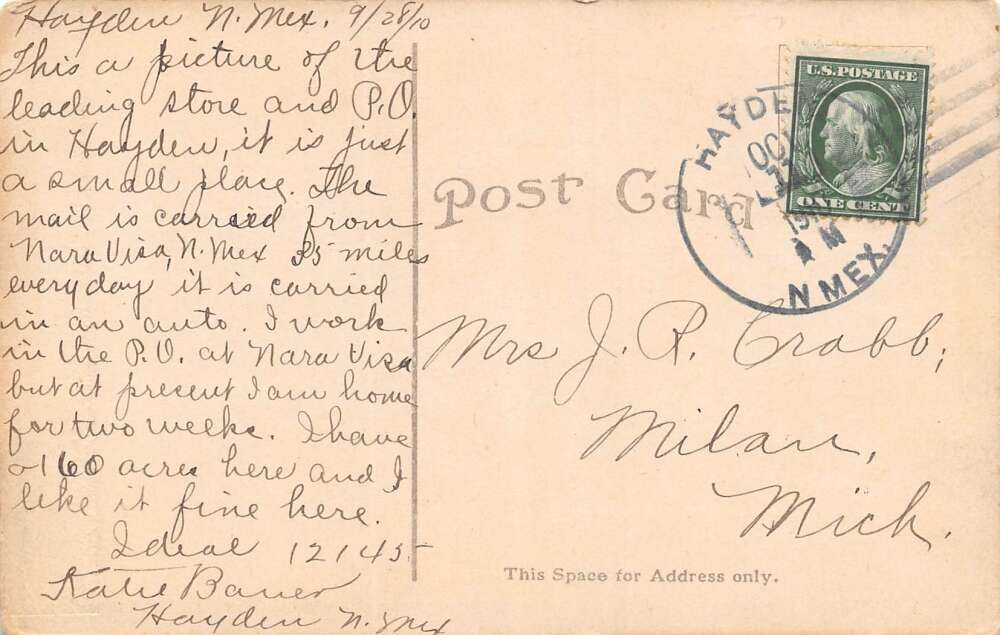 Hayden N. Mex. 9/28/10
This a picture of the
leading store and P.O.
in Hayden, it is just
a small place. The
mail is carried from
Nara Visa, N. Mex 35 miles
everyday it is carried
in an auto. I work
in the P.O. at Nara Visa
but at present I am home
for two weeks. I have
160 acres here and I
like it fine here.
Ideal 12145
Katie Bauer
Hayden N. Mex
Post Card
HAYDEN
OCT
1910
A M
N MEX.
U.S. POSTAGE
ONE CENT
Mrs J. R. Crabb,
Milan,
Mich.
This Space for Address only.